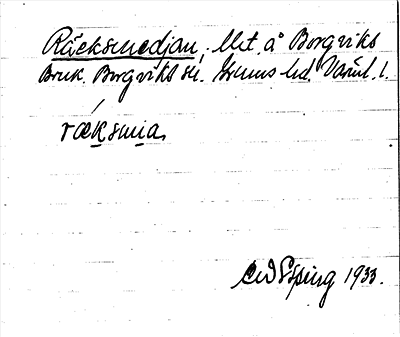 Räcksmedjan, Utt. å Borgviks
Bruk. Borgviks sn. Grums hd. Värml. l.
ræksmia
Esping 1933.